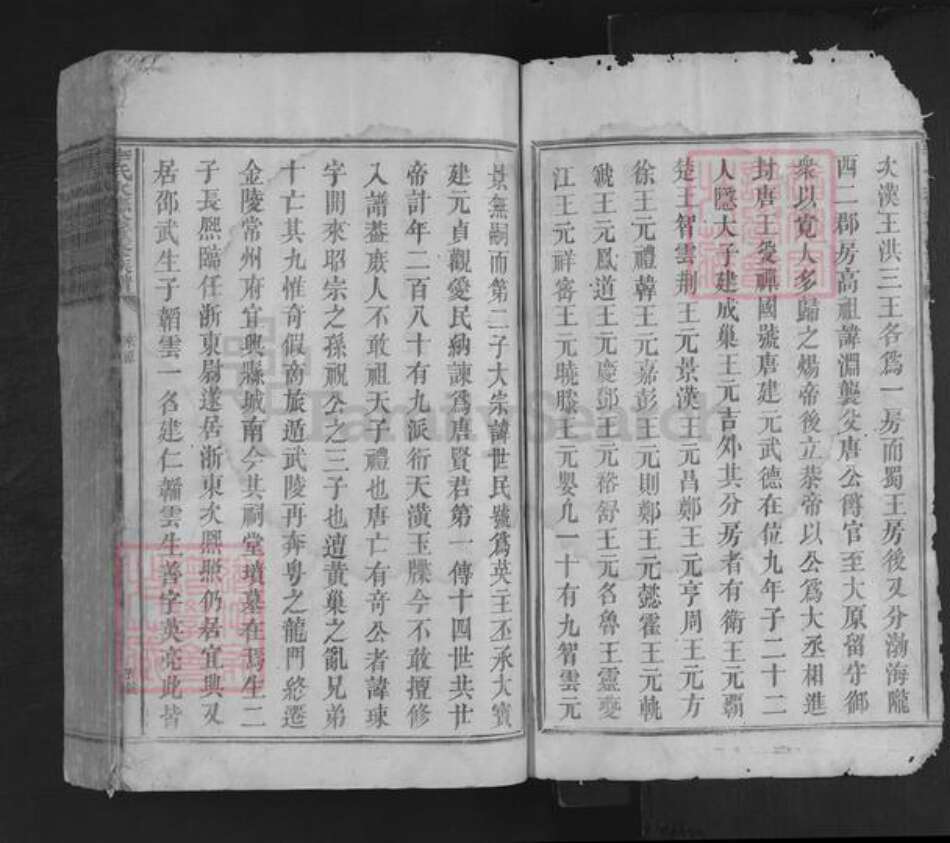 次漢王洪三王各爲一房而蜀王房後又分渤海隴
西二郡房高祖諱淵襲父唐公爵官至大原留守御
衆以寬人多歸之煬帝後立恭帝以公爲大丞相進
封唐王受禪國號唐建元武德在位九年子二十二
人隱大子建成巢王元吉外其分房者有衛王元霸
楚王智雲荆王元景漢王元昌鄭王元亨周王元方
徐王元禮韓王元嘉彭王元則鄭王元懿霍王元軌
虢王元鳳道王元慶鄧王元裕舒王元名魯王靈夔
江王元祥密王元曉滕王元嬰凡一十有九智雲元
景無嗣而第二子大宗諱世民號爲英主丕承大寶
建元貞觀愛民納諫爲唐賢君第一傳十四世共廿
帝計年二百八十有九派衍天潢玉牒今不敢擅修
入譜葢庶人不敢祖天子禮也唐亡有奇公者諱琼
字開來昭宗之孫祝公之三子也遭黄巢之亂兄弟
十亡其九惟奇假商旅遁武陵再奔粤之龍門終遷
金陵常州府宜興縣城南今其祠堂墳墓在焉生二
子長熙臨任浙東尉遂居浙東次熙照仍居宜興又
居邵武生子韜雲一名建仁韜雲生善字英亮此皆
FamilySearch